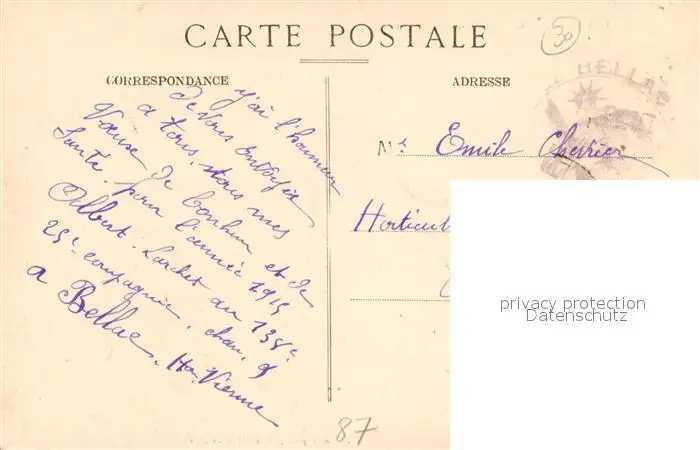 CARTE POSTALE
30
CORRESPONDANCE
j'ai l'honneur
de vous envoyer
a tous, tous mes
Vœux de bonheur et de
Santé. pour l'année 1915
Albert Larchet au 138e
25e compagnie, chan, 9
a Bellac. Hte Vienne
ADRESSE
BELLAC
Mr Emile Chevrier
Horticult
87
privacy protection
Datenschutz